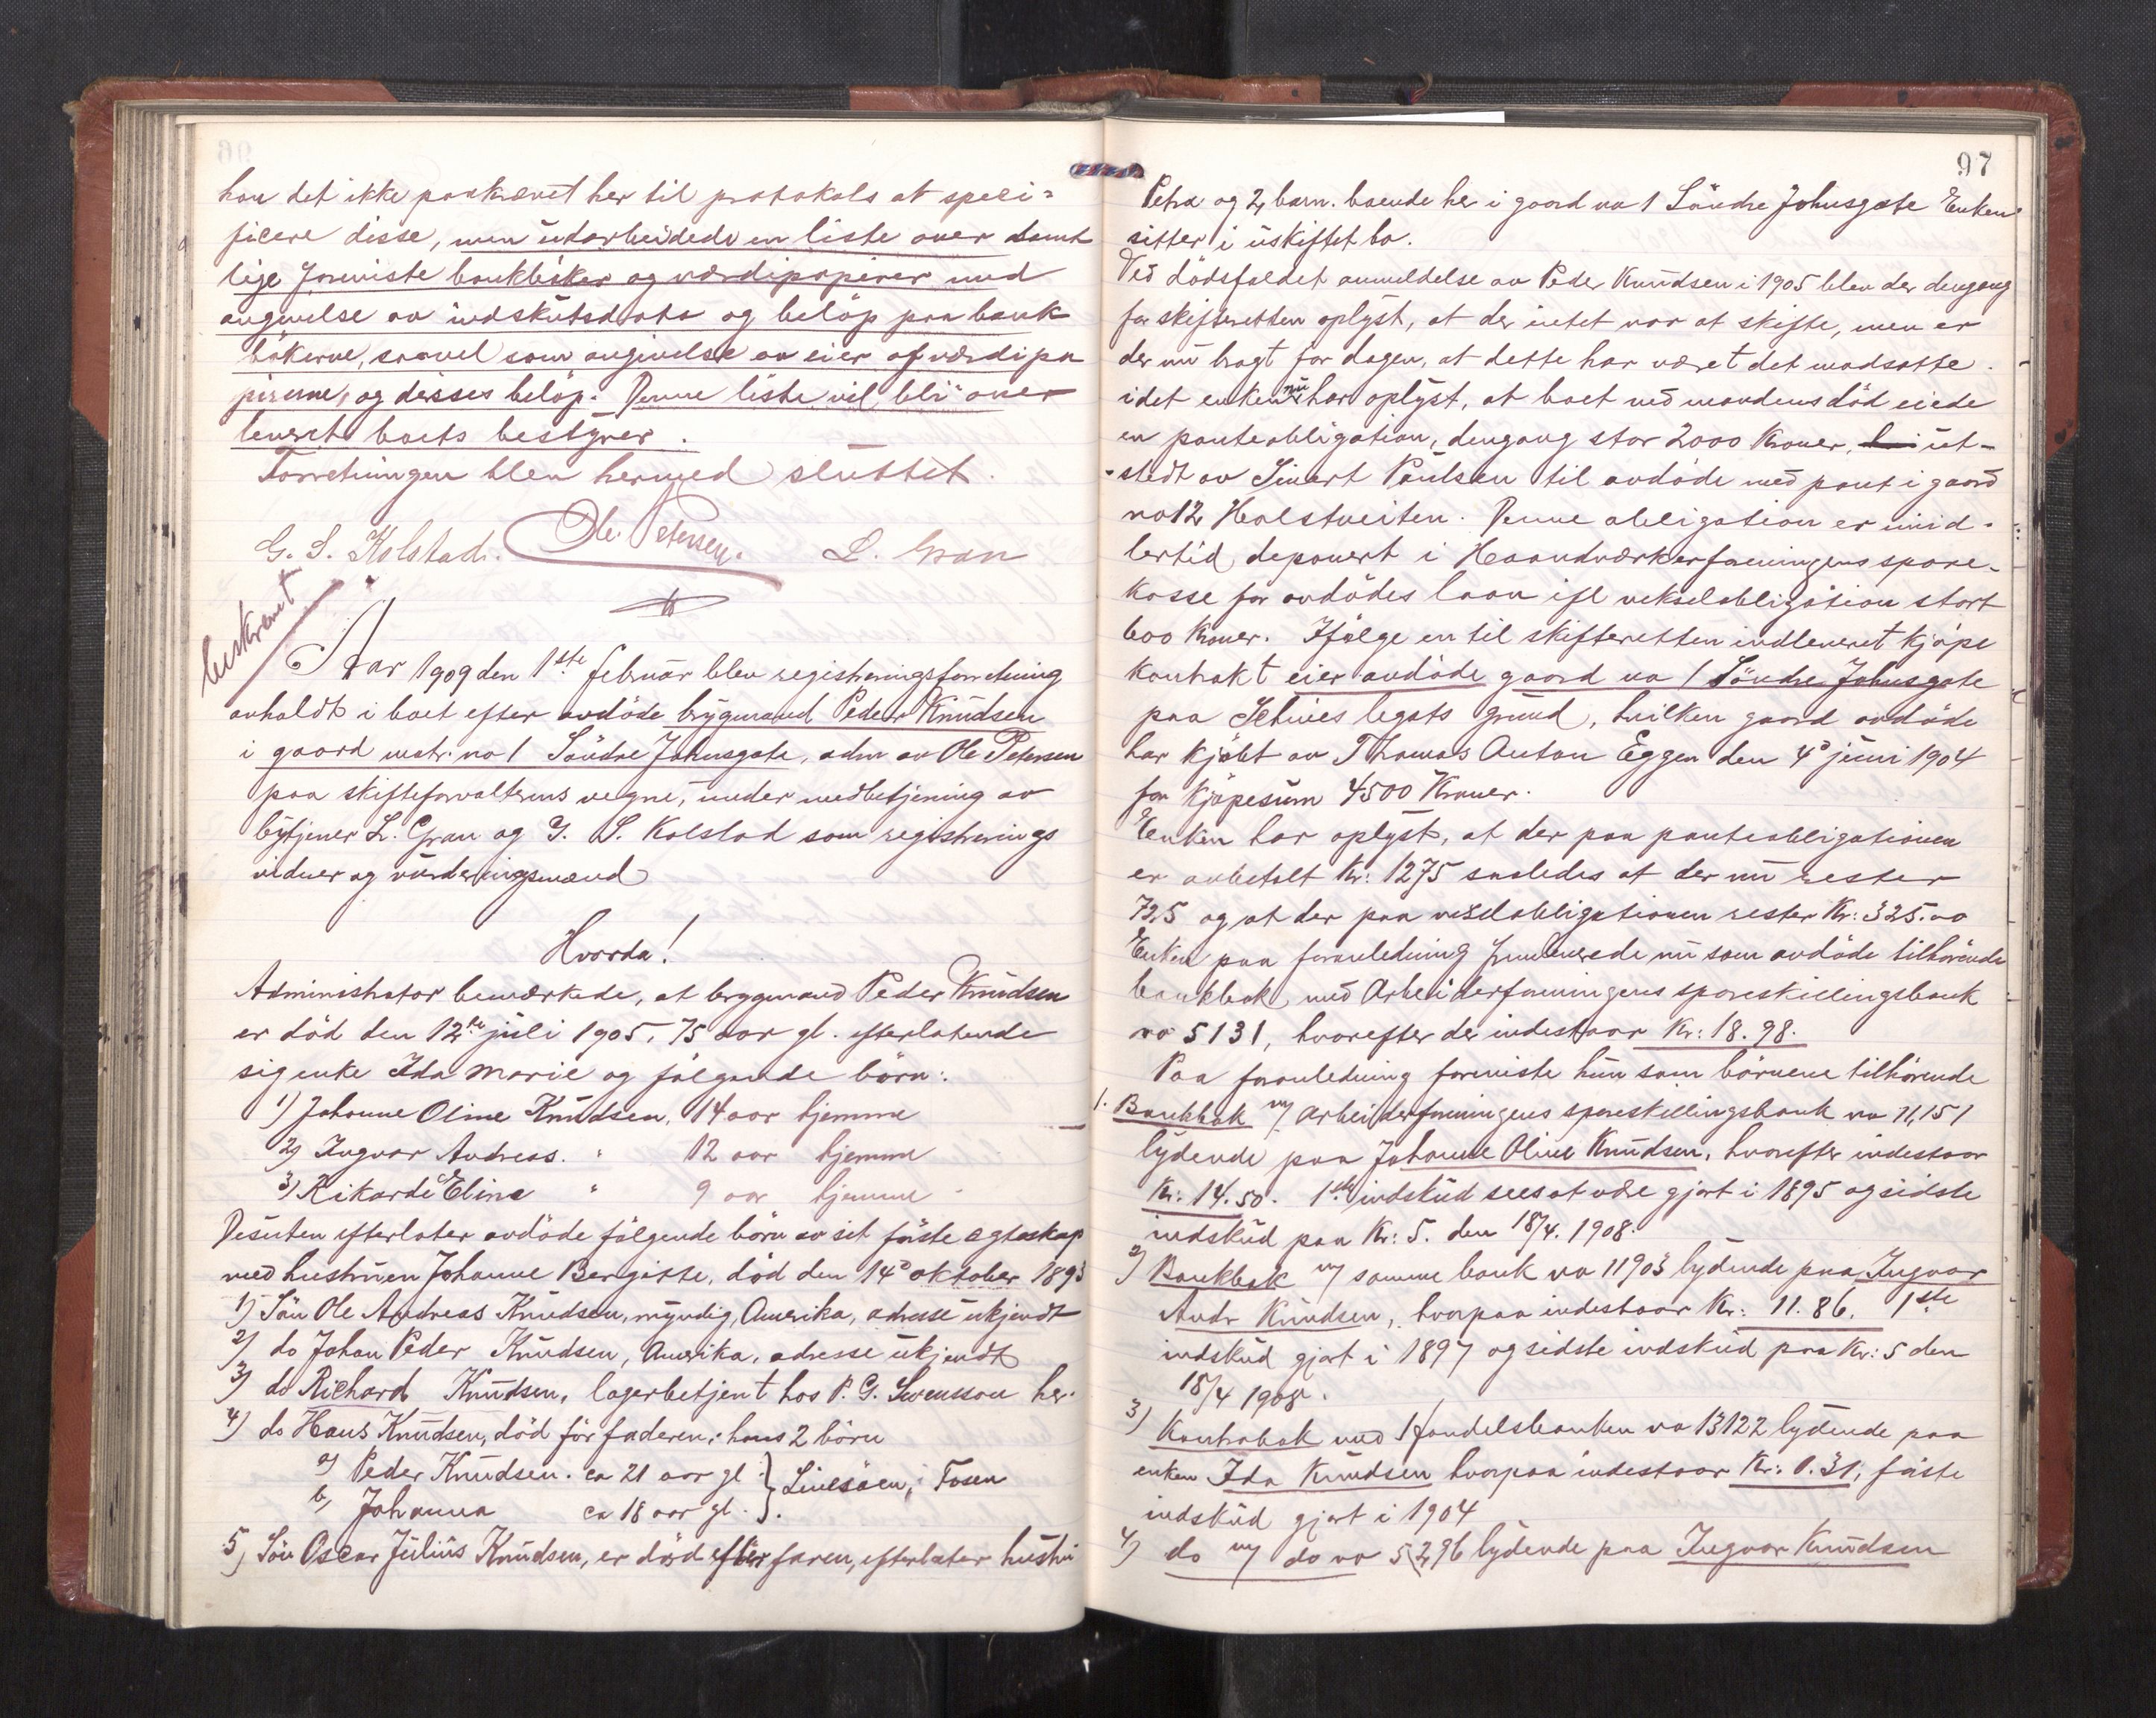 han det ikke paakrævet her til protokols at speci=
ficere disse, men utarbeidede en liste over samt
lige foreviste bankbøker og værdipapirer med
angivelse av indskutsdato og beløp paa bank
bøkerne, saavel som angivelse av eier af værdipa
pirerne, og disses beløp. Denne liste vil bli over
leveret boets bestyrer.
Forretningen blev hermed sluttet.
G. S. Kolstad. Ole Petersen. L. Gran
beskrevet
Aar 1909 den 1ste februar blev registreringsforretning
avholdt i boet efter avdöde brygmand Peder Knudsen
i gaard matr. no 1 Søndre Johnsgate, adm av Ole Petersen
paa skifteforvalterens vegne, under medbetjening av
bytjener L. Gran og G. S. Kolstad som registrerings
vidner og vurderingsmænd
Hvorda!
Administrator bemærkede, at brygmand Peder Knudsen
er död den 12te juli 1905, 75 aar gl. efterlatende
sig enke Ida Marie og fölgende börn:
1) Johanne Oline Knudsen, 14 aar hjemme
2) Ingvar Andreas. " 12 aar hjemme
3) Rikarde Eline " 9 aar hjemme
Desuten efterlater avdöde fölgende börn av sit förste egteskap
med hustruen Johanne Bergitte, död den 14de oktober 1893
1) Sön Ole Andreas Knudsen, myndig, Amerika, adresse ukjendt
2) do Johan Peder Knudsen, Amerika, adresse ukjendt
3) do Richard Knudsen, lagerbetjent hos P. G. Svensson her.
4) do Hans Knudsen, död för faderen, hans 2 börn
a) Peder Knudsen. ca 21 aar gl } Linesöen, Fosen
b) Johanna ca 18 aar gl.
5) Sön Oscar Julius Knudsen, er död efter faren, efterlater hustru
97
Petra og 2 barn. boende her i gaard no 1 Söndre Johnsgate Enken
sitter i uskiftet bo.
Ved dödsfaldet anmeldelse av Peder Knudsen i 1905 blev der dengang
for skifteretten oplyst, at der intet var at skifte, men er
der nu bragt for dagen, at dette har været det modsatte.
idet enken nu har oplyst, at boet ved mandens död eiede
en panteobligation, dengang stor 2000 Kroner, ut-
stedt av Sivert Paulsen til avdöde med pant i gaard
no 12 Halstveiten. Denne obligation er imid-
lertid deponert i Haandværkerforeningens spare-
kasse for avdödes laan ifl vekselobligation stort
600 Kroner. Ifölge en til skifteretten indleveret kjöpe
kontrakt eier avdöde gaard no 1 Söndre Johnsgate
paa Schives legats grund, hvilken gaard avdöde
har kjöbt av Thomas Anton Eggen den 4de juni 1904
for kjöpesum 4500 Kroner.
Enken har oplyst, at der paa panteobligationen
er avbetalt Kr: 1275 saaledes at der nu rester
725 og at der paa vexelobligationen rester Kr: 325.00
Enken paa foranledning fremleverede nu som avdöde tilhörende
bankbok med Arbeiderforeningens spareskillingsbank
no 5131, hvorefter der indestaar Kr: 18.98.
Paa foranledning foreviste hun som börnene tilhörende
1. Bankbok m/ Arbeiderforeningens spareskillingsbank no 11,151
lydende paa Johanne Oline Knudsen, hvorefter indestaar
Kr: 14.50. 1ste indskud sees at være gjort i 1895 og sidste
indskud paa Kr: 5. den 18/4. 1908.
2) Bankbok m/ samme bank no 11903 lydende paa Ingvar
Andr Knudsen, hvorpaa indestaar Kr: 11.86. 1ste
indskud gjort i 1897 og sidste indskud paa Kr: 5 den
18/4 1908.
3) Kontrabok med Handelsbanken no 13122 lydende paa
enken Ida Knudsen hvorpaa indestaar Kr: 0.31, förste
indskud gjort i 1904
4) do m/ do no 5296 lydende paa Ingvar Knudsen